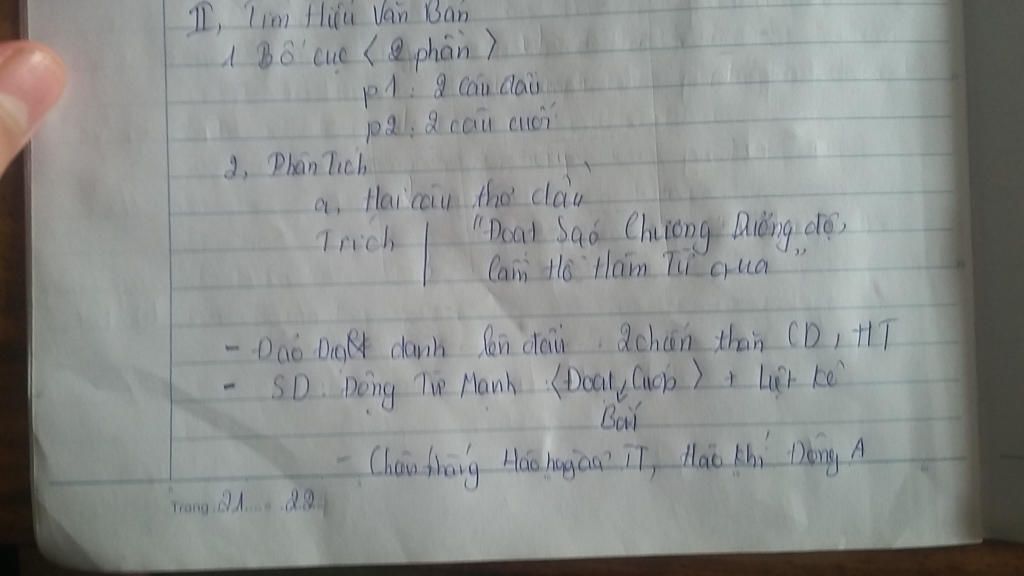 II, Tìm Hiểu Văn Bản
1 Bố cục < 2 phần >
p1 : 2 câu đầu
p2 : 2 câu cuối
2, Phân Tích
a, Hai câu thơ đầu
Trích "Đoạt Sáo Chương Dương độ,
Cầm Hồ Hàm Tử quan"
- Đảo danh lên đầu . 2 chiến thắn CD, HT
- SD : Động Từ Mạnh <Đoạt, Cướp > + Liệt kê
Bắt
- Chiến thắng Hào hùng , Hào khí Đông A
Trang 21 22